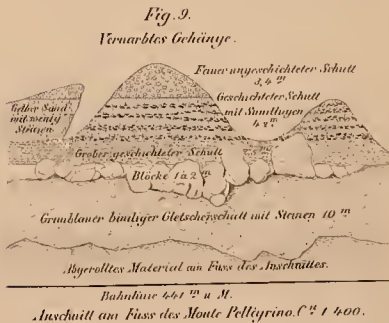 Fig. 9.
Vernarbtes Gehänge.
Feuer ungeschichteter Schutt
3,4 m
Gelber Sand
mit wenig
Steinen
Geschichteter Schutt
mit Sandlagen
4 m
Grober geschichteter Schutt
Blöcke 1 à 2 m
Graublauer bindiger Gletscherschutt mit Steinen 10 m
Abgerolltes Material am Fuss des Anschnittes.
Bahnlinie 441 m ü M.
Anschnitt am Fuss des Monte Pellegrino. 1 400.